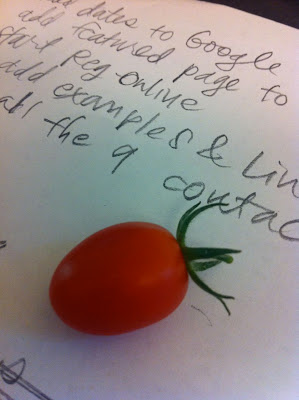 add dates to Google
add featured page to
start Reg online
add examples & Lin
all the 9 contac